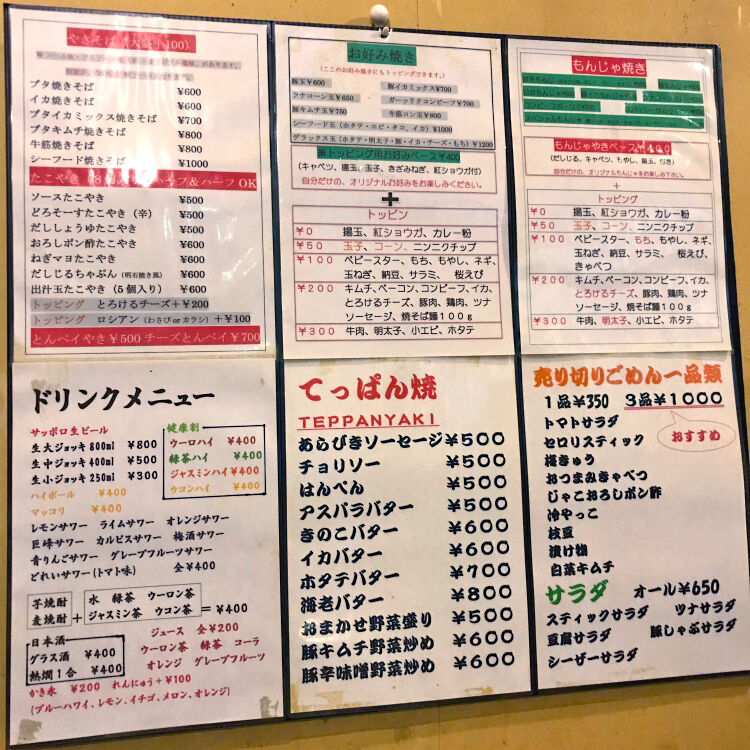 やきそば（大盛+100）
ブタ焼きそば ¥600
イカ焼きそば ¥600
ブタイカミックス焼きそば ¥700
ブタキムチ焼きそば ¥800
牛筋焼きそば ¥800
シーフード焼きそば ¥1000
ソースたこやき ¥500
どろそーすたこやき（辛） ¥500
だししょうゆたこやき ¥500
おろしポン酢たこやき ¥600
ねぎマヨたこやき ¥600
だしじるちゃぷん（明石焼き風） ¥600
出汁玉たこやき（5個入り） ¥600
トッピング とろけるチーズ+¥200
トッピング ロシアン（わさび or カラシ）+¥100
とんペイやき¥500 チーズとんペイ¥700
お好み焼き
（ここのお好み焼きにもトッピングできます。）
豚玉¥600 豚イカミックス¥700
ツナコーン玉¥650 ガーリックコンビーフ¥700
豚キムチ玉¥750 牛筋コン玉¥800
シーフード玉（ホタテ・エビ・タコ、イカ）¥1000
デラックス玉（ホタテ・明太子・豚・イカ・チーズ・もち）¥1200
トッピング用お好みベース¥400
（キャベツ、揚玉、玉子、きざみねぎ、紅ショウガ付）
自分だけの、オリジナルお好みをお楽しみください。
+
トッピン
¥0 揚玉、紅ショウガ、カレー粉
¥50 玉子、コーン、ニンニクチップ
¥100 ベビースター、もち、もやし、ネギ、
玉ねぎ、納豆、サラミ、 桜えび
¥200 キムチ、ベーコン、コンビーフ、イカ、
とろけるチーズ、豚肉、鶏肉、ツナ
ソーセージ、焼そば麺100g
¥300 牛肉、明太子、小エビ、ホタテ
もんじゃ焼き
もんじゃやきベース¥400
（だしじる、キャベツ、もやし、揚玉、付き）
自分だけの、オリジナルもんじゃお楽しみ下さい。
+
トッピング
¥0 揚玉、紅ショウガ、カレー粉
¥50 玉子、コーン、ニンニクチップ
¥100 ベビースター、もち、もやし、ネギ、
玉ねぎ、納豆、サラミ、 桜えび、
きゃべつ
¥200 キムチ、ベーコン、コンビーフ、イカ、
とろけるチーズ、豚肉、鶏肉、ツナ
ソーセージ、焼そば麺100g
¥300 牛肉、明太子、小エビ、ホタテ
ドリンクメニュー
サッポロ生ビール
生大ジョッキ 800ml ¥800
生中ジョッキ 400ml ¥500
生小ジョッキ 250ml ¥300
ハイボール ¥400
マッコリ ¥400
健康割
ウーロハイ ¥400
緑茶ハイ ¥400
ジャスミンハイ ¥400
ウコンハイ ¥400
レモンサワー ライムサワー オレンジサワー
巨峰サワー カルピスサワー 梅酒サワー
青りんごサワー グレープフルーツサワー
どれいサワー（トマト味） 全¥400
芋焼酎
麦焼酎
+
水 緑茶 ウーロン茶
ジャスミン茶 ウコン茶
=¥400
日本酒
グラス酒 ¥400
熱燗1合 ¥400
ジュース 全¥200
ウーロン茶 緑茶 コーラ
オレンジ グレープフルーツ
かき氷 ¥200 れんにゅう+¥100
（ブルーハワイ、レモン、イチゴ、メロン、オレンジ）
てっぱん焼
TEPPANYAKI
あらびきソーセージ ¥500
チョリソー ¥500
はんぺん ¥500
アスパラバター ¥500
きのこバター ¥600
イカバター ¥600
ホタテバター ¥700
海老バター ¥800
おまかせ野菜盛り ¥500
豚キムチ野菜炒め ¥600
豚辛味噌野菜炒め ¥600
売り切りごめん一品類
1品¥350 3品¥1000
おすすめ
トマトサラダ
セロリスティック
梅きゅう
おつまみきゃべつ
じゃこおろしポン酢
冷やっこ
枝豆
漬け物
白菜キムチ
サラダ オール¥650
スティックサラダ ツナサラダ
豆腐サラダ 豚しゃぶサラダ
シーザーサラダ